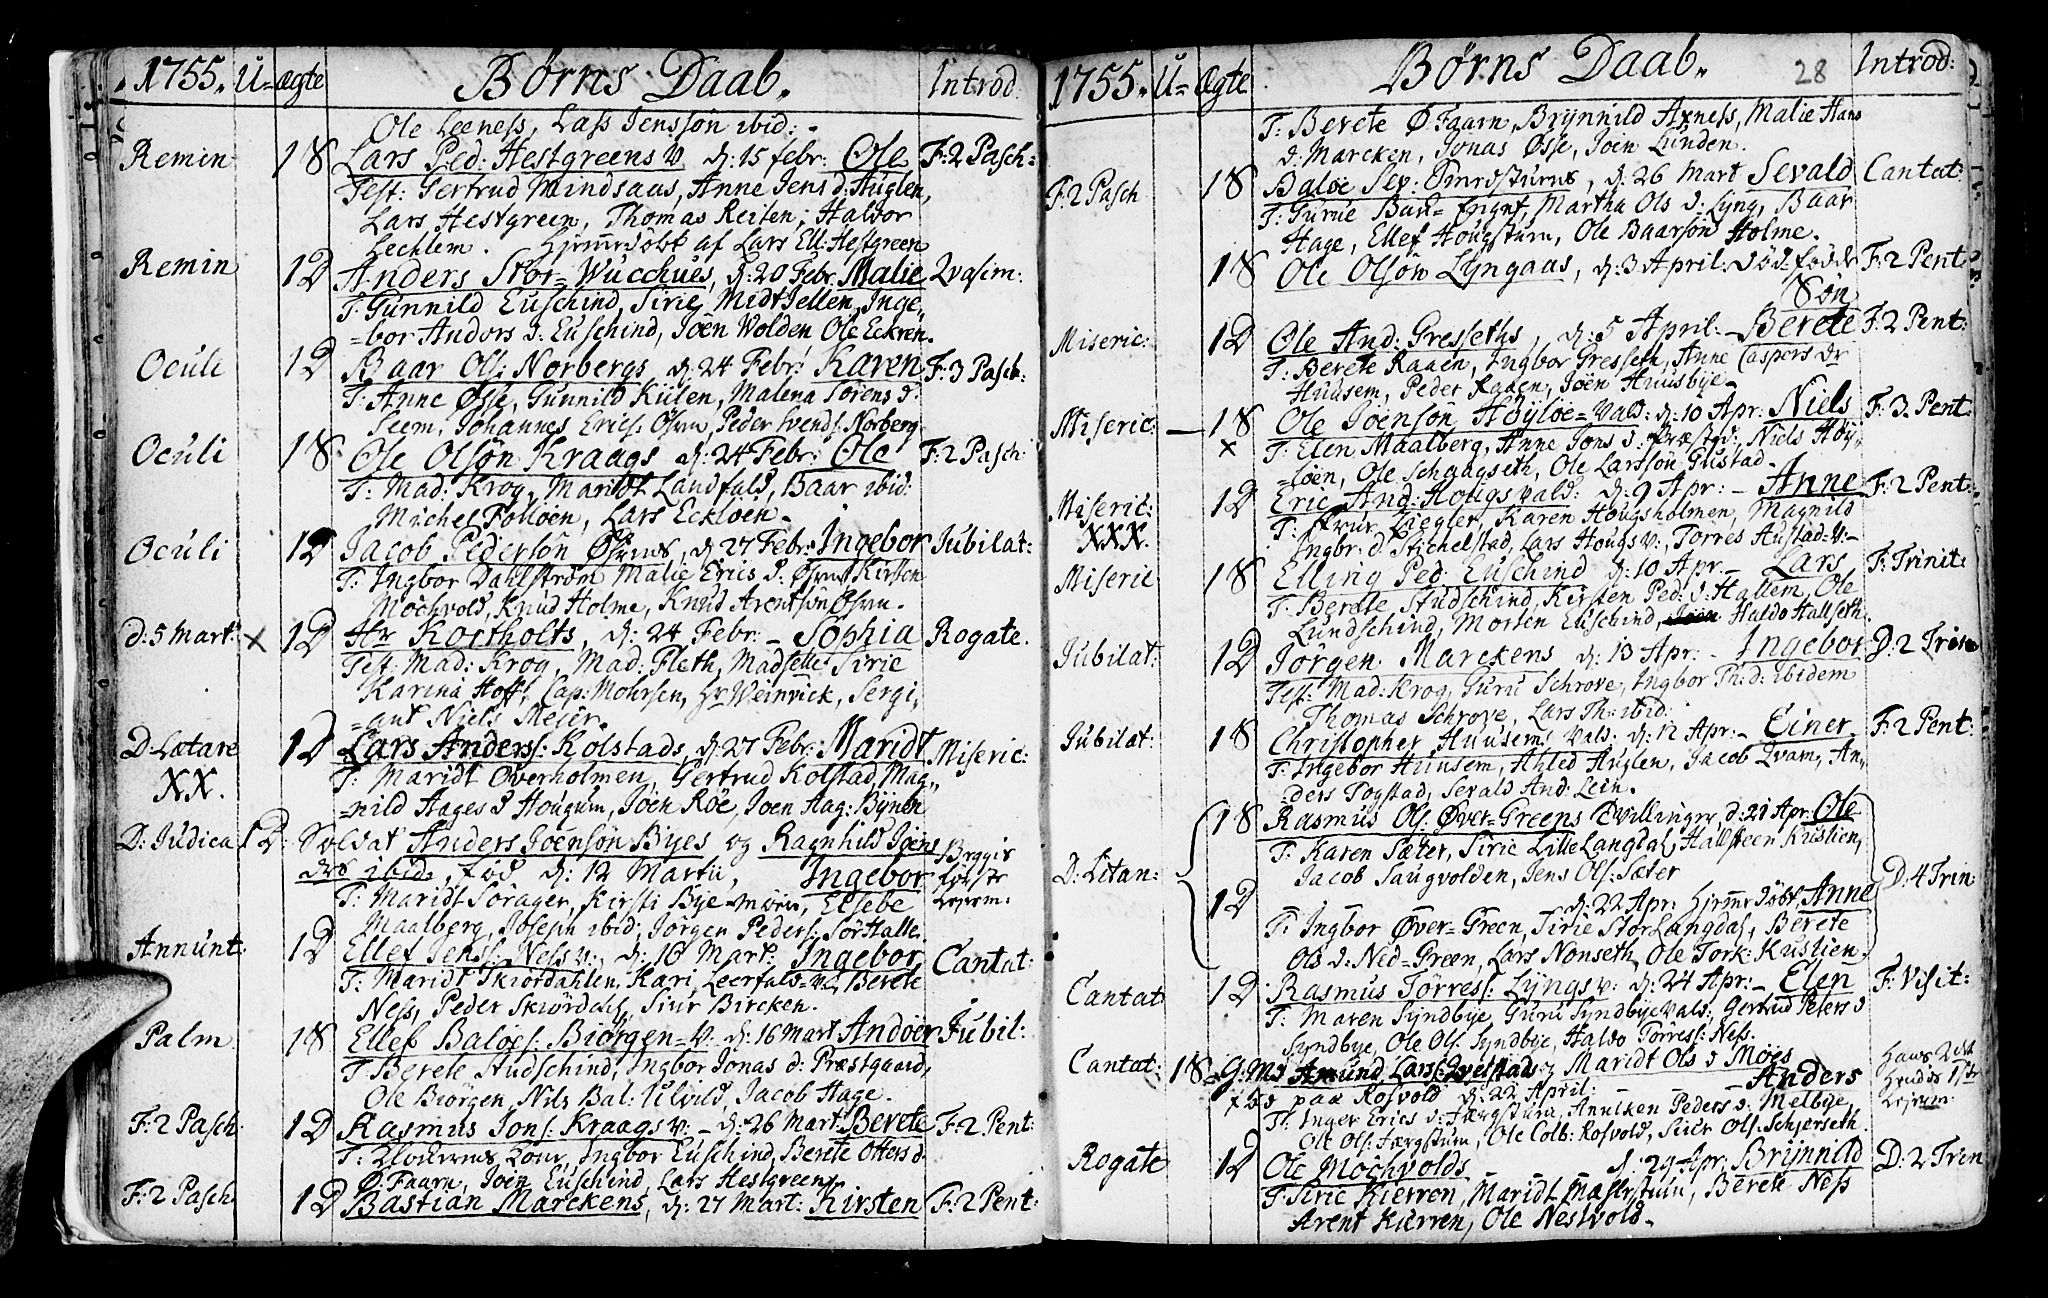 1755. U= Ægte Børns Daab. Introd:
Ole Leeness, Lass Jensøn ibid:
Remin 1 S Lars Ped: Hestgreens V. d: 15 febr: Ole F: 2 Pasch=
Test: Gertrud Mindsaas, Anne Jens d: Auglen,
Lars Hestgreen, Thomas Reiten, Haldor
Lechlem. Hjemmedøbt af Lars Ell: Hestgreen
Remin 1 D Anders Stor=Wucchues, d: 20 Febr: Malie Qvasim:
T: Gunnild Euschind, Sirie MidtJellen, Inge,,
=bor Andors d: Euschind, Joen Wolden Ole Eckren.
Oculi 1 D Baar Ols: Norbergs, d: 24 Febr: Karen F: 3 Pasch:
T: Anne Øsse, Gunnild Kiilen, Malena Sørens d:
Seem, Johannes Erics: Ørn, Peder Svends: Norberg.
Oculi 1 S. Ole Olsøn Kraags d: 24 Febr: Ole F: 2 Pasch:
T: Mad: Krog, Maridt Landfald, Baar ibid:
Michel Folloen, Lars Eckloen.
Oculi 1 D Jacob Pedersøn d: 27 Febr: Ingebor Jubilat:
T: Ingbor Dahlstrøm Malie Erics d: Kirsten
Mochvold, Knud Holme, Knud Arentsøn
d: 5 Mart: x 1 D Hr Kortholts, d: 24 Febr: - Sophia Rogate.
Test: Mad: Krog, Mad: Pleth, Madselle Sirie
Karina Hoff, Cap: Mohrsen, Hr Weinrick, Sergi,
=ant Niels Meier.
D: Lætare 1 D Lars Anderss: Kolstads, d: 27 Febr: Maridt Miseric:
XX. T: Maridt Overholmen, Gertrud Kolstad, Mag,,
=nild Hages d Hougum, Joen Røe, Joen Aag: Bÿnen
D: Judica 1 D. Soldat Anders Joensøn Byes og Ragnhild Joens Beggis
drs ibid:, fød d: 12 Martii, Ingebor første
T: Maridt Sorager, Kirsti Bye=Moen, Elsebe Lejerm:
Maalberg, Joseph ibid, Jørgen Peders: SørHalle.
Annunt: 1 D Ellef Jens: Ness v:, d: 16 Mart: Ingebor Cantat:
T: Maridt Skiordahlen, Kari Leerfalds=v: Berete
Ness, Peder Skiørdahl, Siur Bircken.
Palm 1 S Ellef Baloes: Biørgen=V: d: 16 Mart Andoer Jubil:
T: Berete Studschind, Ingbor Jonas d: Præstgaard,
Ole Biørgen, Nils Bal: Ulvild, Jacob Hage.
F: 2 Pasch: 1 D Rasmus Jons: Kraags v: - d: 26 Mart: Berete F: 2 Pent:
T: Ingbor Euschind, Berete Otters d:
Ø: Faarn, Joen Euschind, Lars Hestgreen
F: 2 Pasch. 1 D Bastian Marckens, d: 27 Mart: Kirsten F: 2 Pent:
1755. U= Ægte. Børns Daab. 28 Introd:
T: Berete Ø: Faarn, Brÿnnild Axness, Malie Hans
d: Marcken, Jonas Øsse, Joen Lunden.
F: 2 Pasch 1 S Baloe Sev: d: 26 Mart Sevald Cantat:
T: Gurue Bau= Engnt, Martha Ols d: Lÿng, Baar
Hage, Ellef Hougsturn, Ole Baarsøn Holme.
1 S Ole Olsøn Lyngaas, d: 3 April: død=fødde F: 2 Pent:
Søn
Miseric: 1 D Ole And: Gresseths, d: 5 April: - Berete F: 2 Pent:
T: Berete Raaen, Ingbor Gresseth, Anne Caspers dr
Huusem, Peder Raaen, Joen Huusbÿe.
Miseric: - 1 S Ole Joensøn Høÿloe=vald: d: 10 Apr: Niels F: 3 Pent:
x T: Elen Maalberg, Anne Jons d: Præstgd:, Niels Høÿ,
=loen, Ole Schaagseth, Ole Larssøn Gustad.
Miseric: 1 D Eric And: Hougs vald: d: 9 Apr: - Anne F: 2 Pent:
XXX. T: Frur Ziegler, Karen Hougsholmen, Magnild
Ingbr: d Stichelstad, Lars Hougs v:, Torres Austad=v: -
Miseric 1 S Elling Ped: Euschind d: 10 Apr: - Lars F: Trinit:
T: Berete Studschind, Kirsten Ped: d: Hallem, Ole
Lundschind, Morten Euschind, Joen Haldo Hallseth.
Jubilat: 1 D Jørgen Marckens d: 13 Apr: - Ingebor D: 2 Trin
Test: Mad: Krog, Guru Schrove, Ingbor Th: d: ibidem
Thomas Schrove, Lars Th: ibid:
Jubilat: 1 S Christopher Huusems Vald: d: 12 Apr: - Einer F: 2 Pent:
T: Ingebor Huusem, Ahled Auglen, Jacob Qvam, An,
=ders Togstad, Sevald And: Lein.
D: Litan: 1 S Rasmus Ols: Øver=Greens Tvillinger d: 21 Apr: Ole D: 4 Trin:
T: Karen Sæter, Sirie LilleLangdal, Hallsteen Kustien,
Jacob Saugvolden, Jens Ols: Sæter
1 D d: 22 Apr: Hjemmedøbt, Anne
T: Ingbor Øver=Green, Sirie StorLangdal, Berete
Ols d: Ned=Green, Lars Nonseth, Ole Tork: Kustien.
Cantat 1 D Rasmus Torress: Lÿngs v: d: 24 Apr: - Elen F: Visit:
T: Maren Sÿndbÿe, Guru Sÿndbÿe Vald:, Gertrud Peters d
Sÿndbye, Ole Ols: Sÿndbÿe, Haldo Torress: Ness.
Cantat: 1 S = G: Md Amund Larss: og Maridt Ols d Møes Hans 2det
fød paa Rosvold d: 22 April: - - - Anders Hendes 1ste
T: Inger Erics d: Færgsturn, Anniken Peders d: Melbye, Lejerm:
Ole Ols: Færgsturn, Ole Colb: Rosvold, Siur Ols: Schjerseth.
Rogate 1 D Ole Mochvolds d: 29 Apr: Brÿnnild D: 2 Trin
T: Sirie Kierren, Maridt Berete Ness
Arent Kierren, Ole Nestvold.